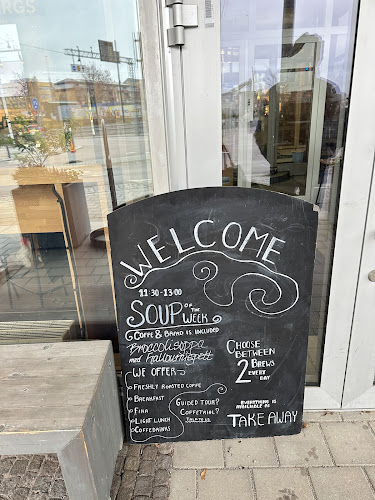 RGS
WELCOME
11:30-13:00
SOUP OF THE WEEK
COFFE & BREAD IS INCLUDED
Broccolisoppa
med Halloumispett
CHOOSE
BETWEEN
2 BREWS
EVERY
DAY
WE OFFER
FRESHLY ROASTED COFFE
BREAKFAST
FIKA
LIGHT LUNCH
COFFEDRINKS
GUIDED TOUR?
COFFETRIAL?
TALK TO US
EVERYTHING IS
AVAILABLE AS
TAKE AWAY